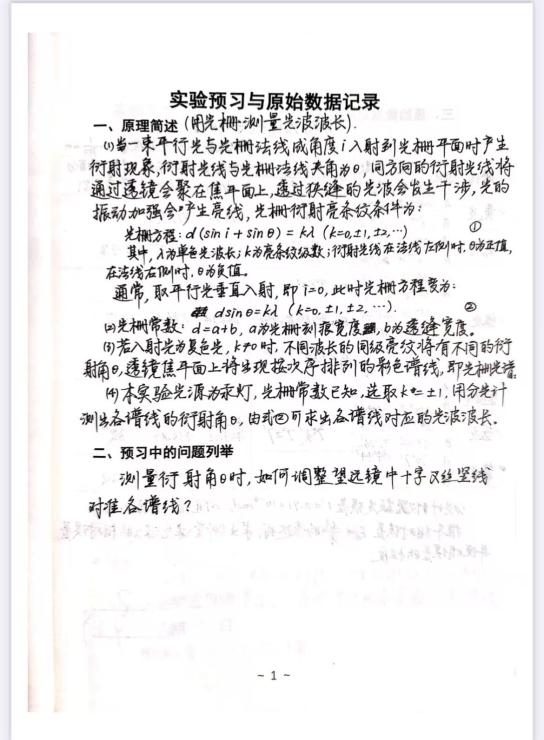 实验预习与原始数据记录
一、原理简述 (用光栅测量光波波长).
(1)当一束平行光与光栅法线成角度i入射到光栅平面时产生
衍射现象,衍射光线与光栅法线夹角为θ,同方向的衍射光线将
通过透镜会聚在焦平面上,透过狭缝的光波会发生干涉,光的
振动加强会产生亮线,光栅衍射亮条纹条件为:
光栅方程: d(sin i + sinθ) = kλ (k=0,±1,±2,…) ①
其中,λ为单色光波长;k为亮条纹级数;衍射光线在法线左侧时,θ为正值,
在法线右侧时,θ为负值.
通常,取平行光垂直入射,即i=0,此时光栅方程变为:
dsinθ=kλ (k=0,±1,±2,…). ②
(2)光栅常数: d=a+b, a为光栅刻痕宽度,b为透缝宽度.
(3)若入射光为复色光, k≠0时,不同波长的同级亮纹将有不同的衍
射角θ,透镜焦平面上将出现按次序排列的彩色谱线,即光栅光谱.
(4)本实验光源为汞灯,光栅常数已知,选取k=±1,用分光计
测出各谱线的衍射角θ,由式②可求出各谱线对应的光波波长.
二、预习中的问题列举
测量衍射角θ时,如何调整望远镜中十字叉丝竖线
对准各谱线?
~ 1 ~